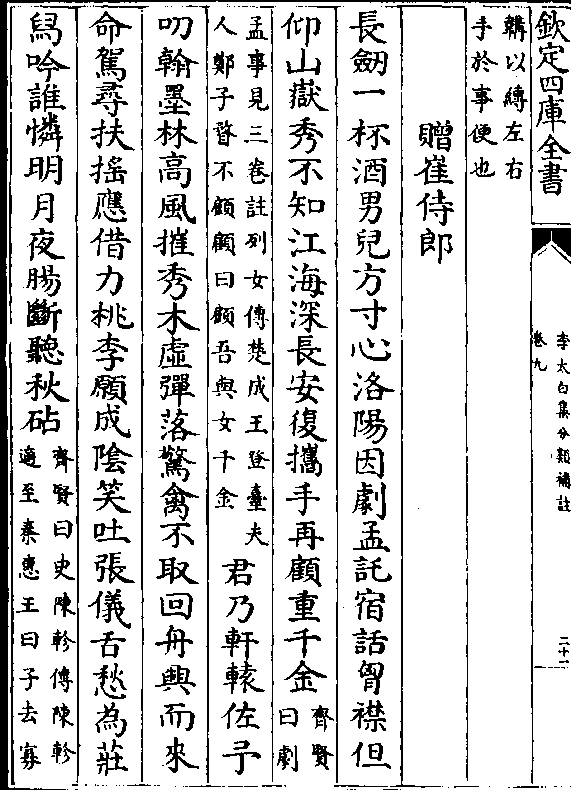 欽定四庫全書
李太白集分類補註
卷九
二十一
韝以縛左右
手於事便也
贈崔侍郎
長劒一杯酒男兒方寸心洛陽因劇孟託宿話胷襟但
仰山嶽秀不知江海深長安復攜手再顧重千金
齊賢
曰劇
孟事見三卷註列女傳楚成王登臺夫
人鄭子瞀不顧顧曰顧吾與女千金
君乃軒轅佐予
叨翰墨林高風摧秀木虛彈落驚禽不取回舟興而來
命駕尋扶搖應借力桃李願成陰笑吐張儀舌愁為莊
舄吟誰憐明月夜腸斷聽秋砧
齊賢曰史陳軫傳陳軫
適至秦惠王曰子去寡